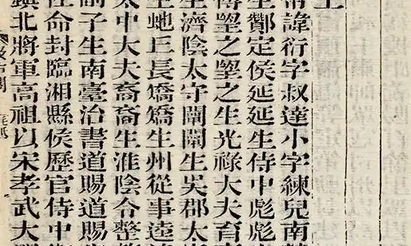 上
帝諱衍字叔達小字練兒南
生酇定侯延延生侍中彪彪
傅朢之朢之生光祿大夫育
生濟陰太守闡闡生吳郡太
生虵丘長矯矯生州從事逵
太中大夫裔裔生淮陰令整
副子生南臺治書道賜道賜
佐命封臨湘縣侯歷官侍中
鎮北將軍高祖以宋孝武大